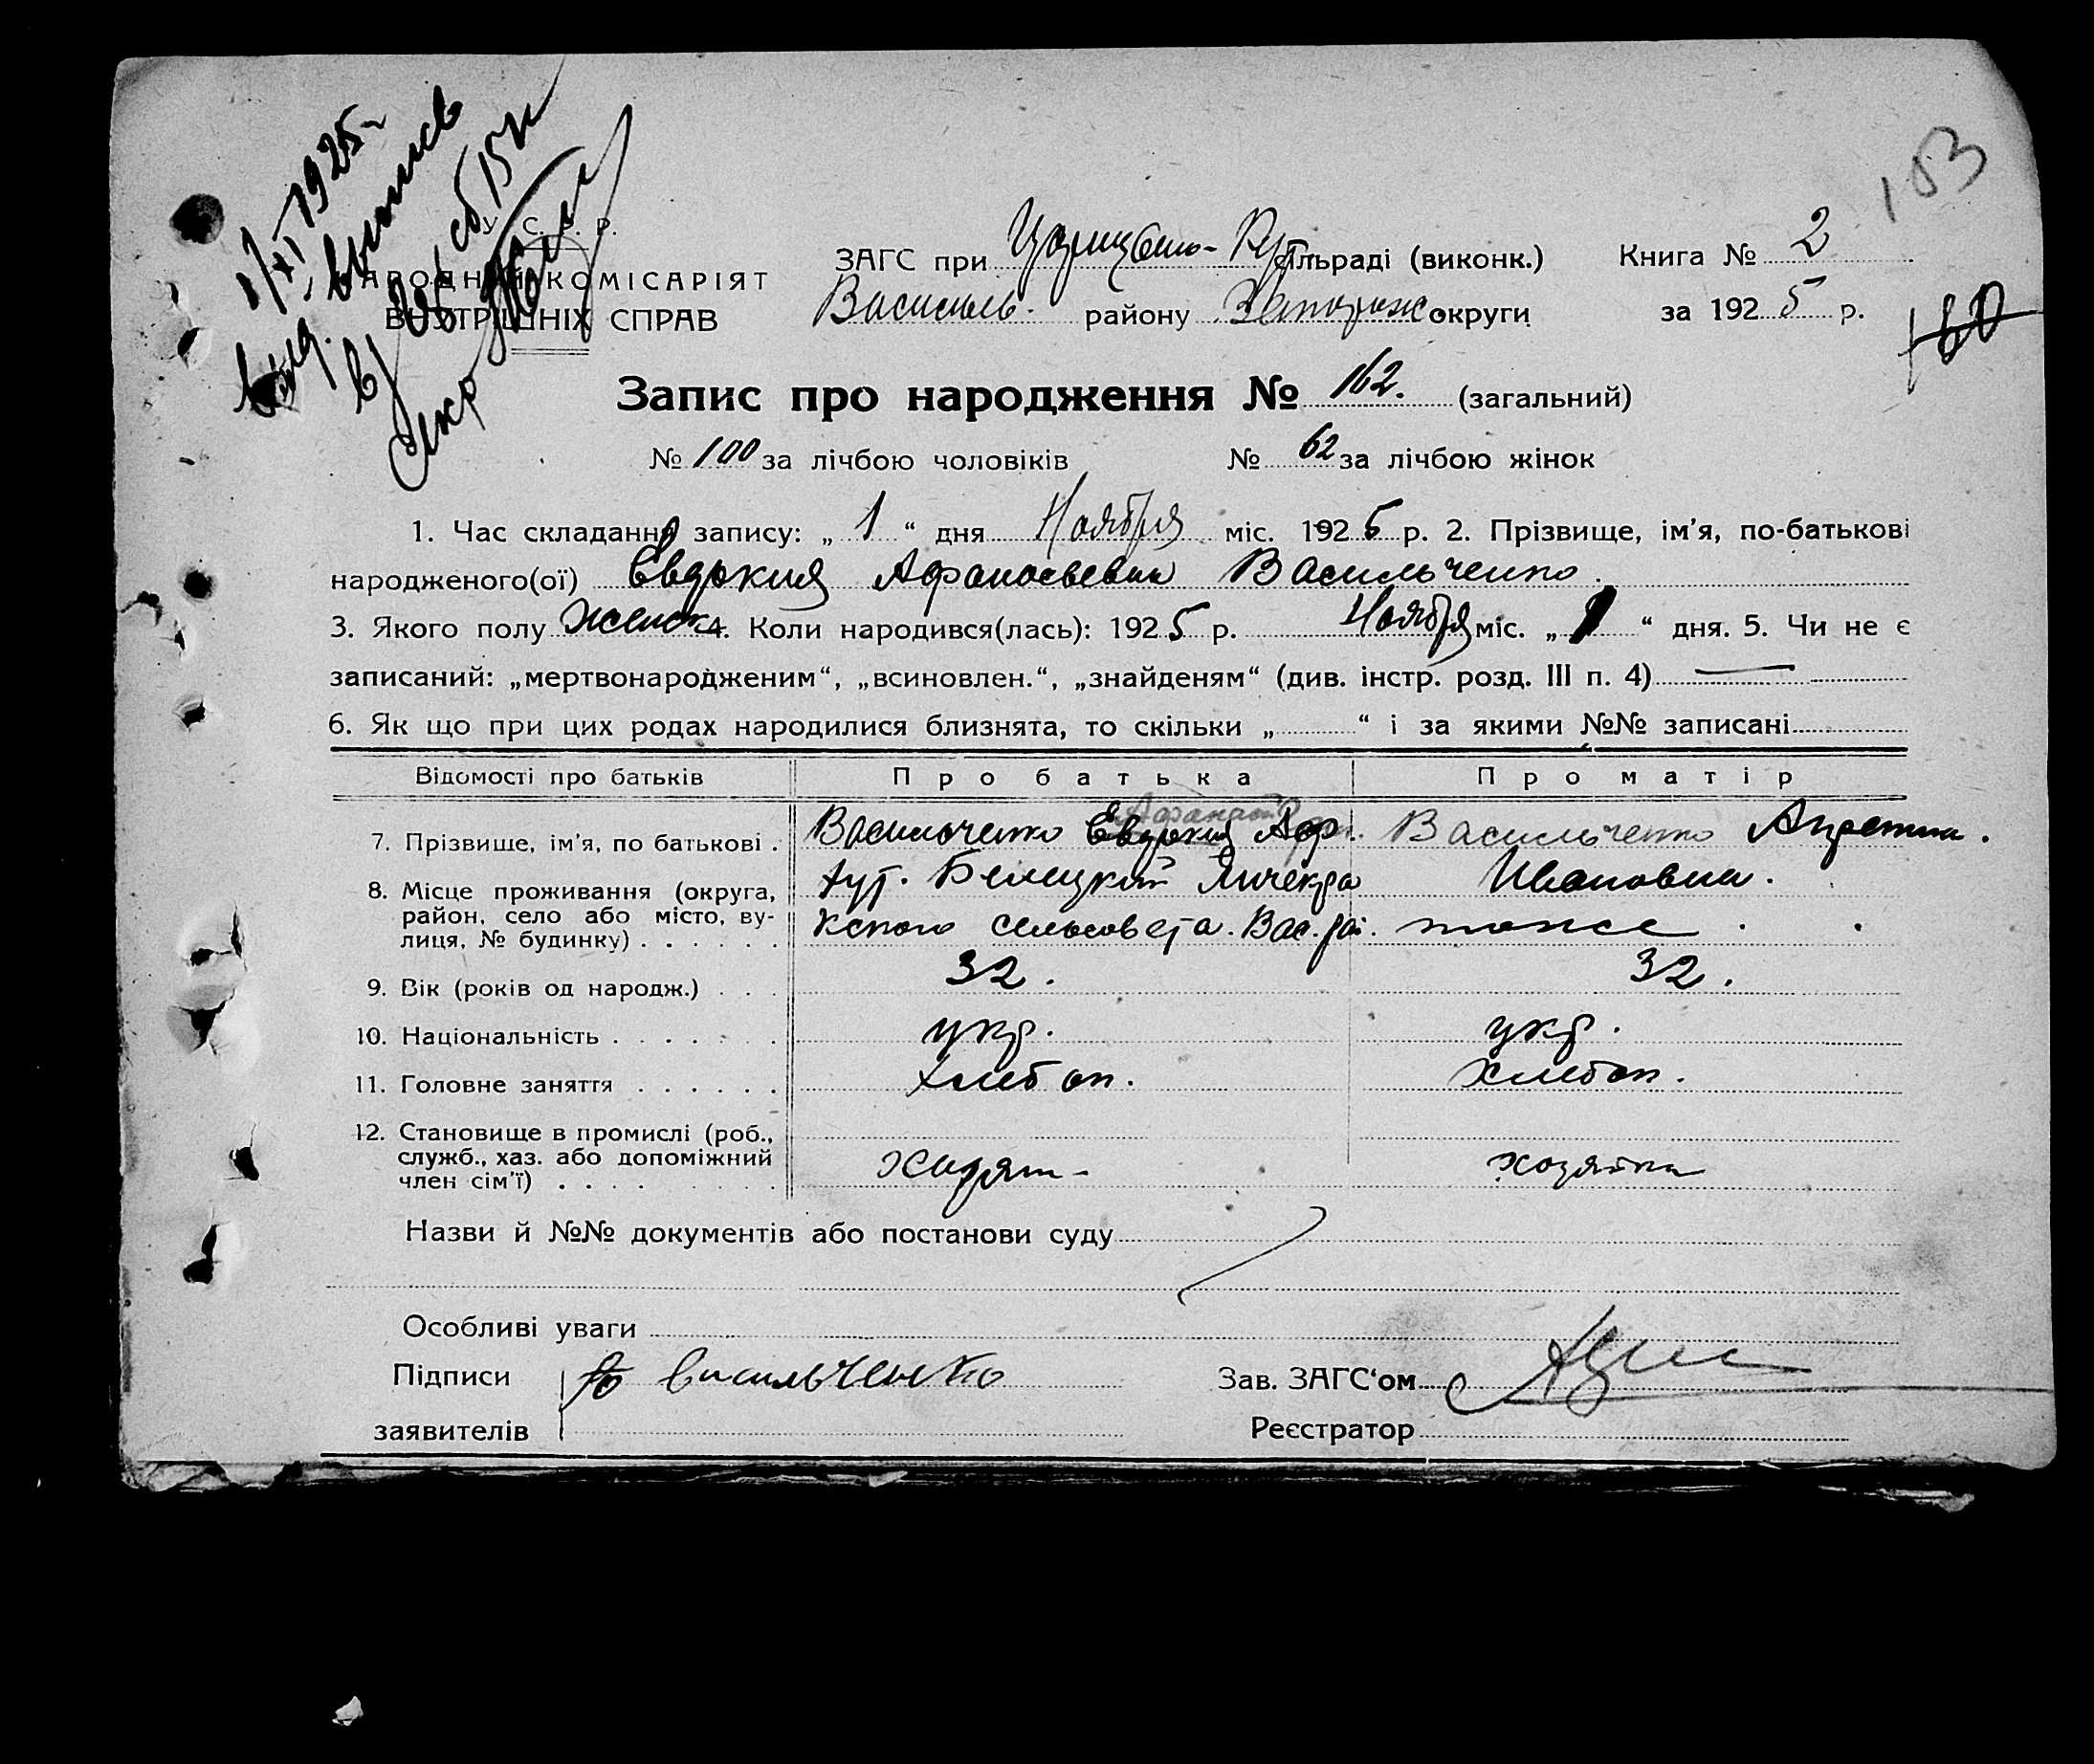 1/XI 1925
выпись
103
У. С. Р. Р.
НАРОДНИЙ КОМІСАРІЯТ
ВНУТРІШНІХ СПРАВ
ЗАГС при Царицыно-Кут. сільраді (виконк.) Книга № 2
Василь. району Запорож. округи за 1925 р.
160
Запис про народження № 162. (загальний)
№ 100 за лічбою чоловіків № 62 за лічбою жінок
1. Час складання запису: „ 1 “ дня Ноября міс. 1925 р. 2. Прізвище, ім’я, по-батькові
народженого(ої) Евдокия Афанасьевна Васильченко.
3. Якого полу женск. 4. Коли народився(лась): 1925 р. Ноября міс. „ 1 “ дня. 5. Чи не є
записаний: „мертвонародженим“, „всиновлен.“, „знайденям“ (див. інстр. розд. III п. 4) —
6. Як що при цих родах народилися близнята, то скільки „ “ і за якими №№ записані
Відомості про батьків Про батька Про матір
7. Прізвище, ім’я, по батькові . Васильченко Евдокия Аф. Васильченко
8. Місце проживання (округа, хут. Белецкий Ивановна.
район, село або місто, ву-
лиця, № будинку) . . . . . . сельсовета. Вас. рай. тоже
9. Вік (років од народж.) . . . 32. 32.
10. Національність . . . . . . . укр. укр.
11. Головне заняття . . . . . . хлебоп. хлебоп.
12. Становище в промислі (роб.,
служб., хаз. або допоміжний хозяйка
член сім’ї) . . . . . . . . .
Назви й №№ документів або постанови суду
Особливі уваги
Підписи васильченко Зав. ЗАГС‘ом
заявителів Реєстратор